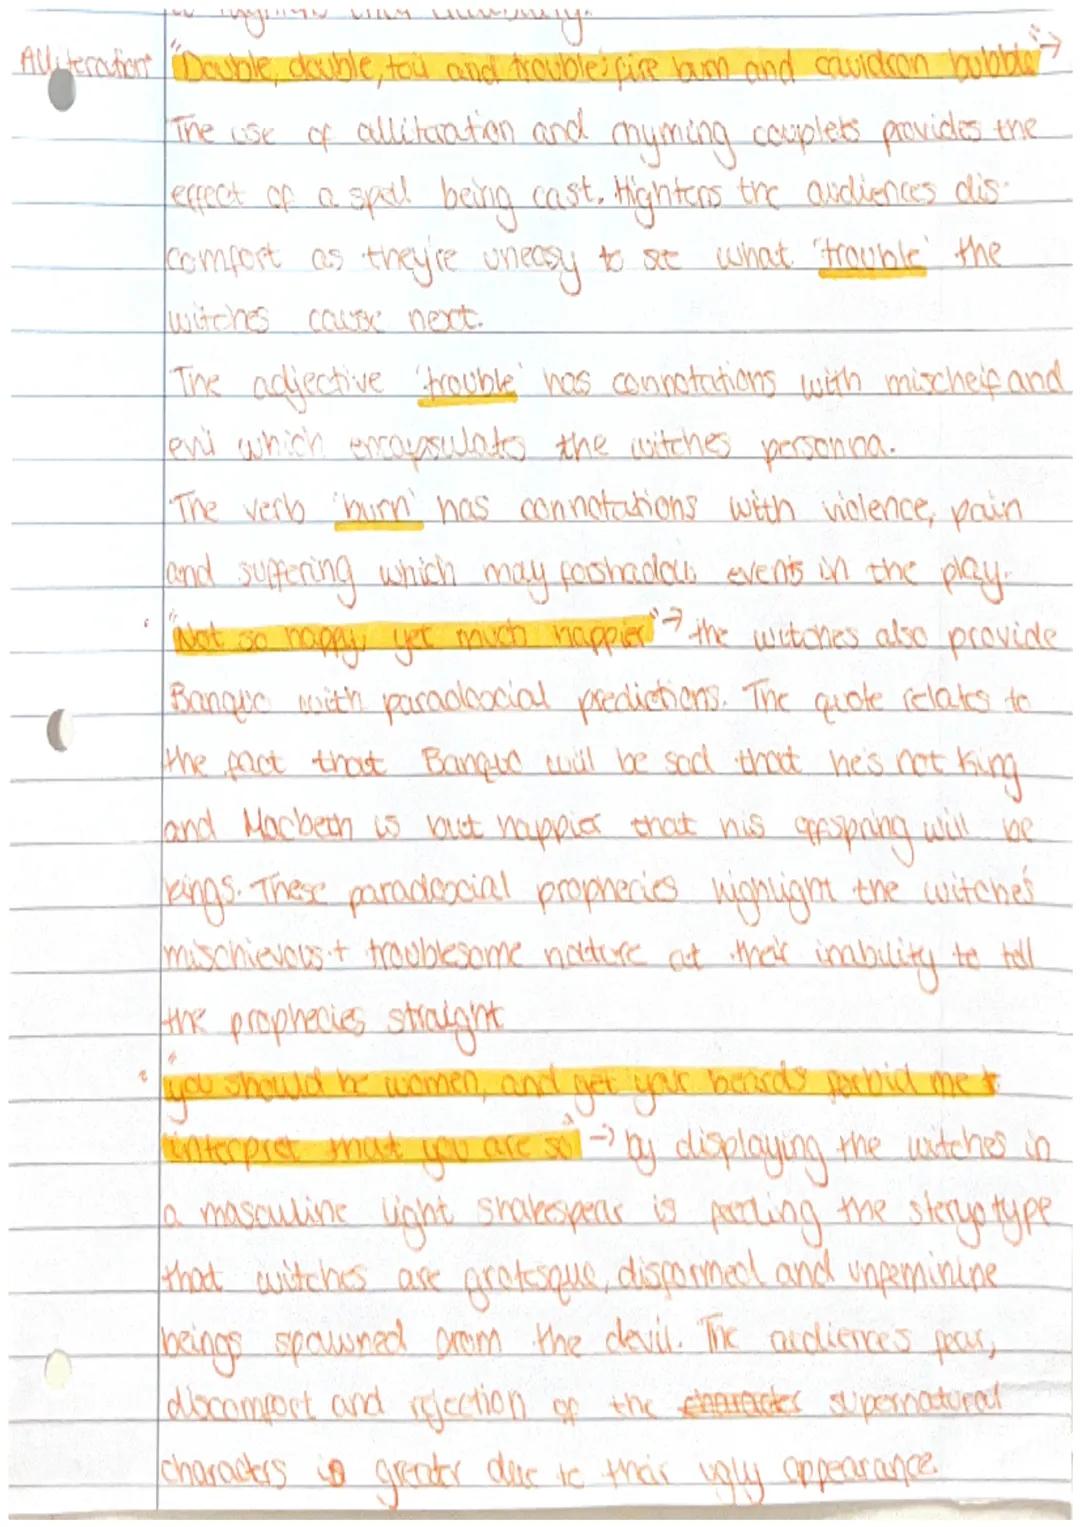 to highlight their
Alliteration "Double, double, toil and trouble; fire burn and cauldron bubble" →
The use of alliteration and rhyming couplets provides the
effect of a spell being cast. Hightens the audiences dis-
comfort as they're uneasy to see what 'trouble' the
witches cause next.
The adjective 'trouble' has connotations with mischeif and
evil which encapsulates the witches personna.
The verb 'burn' has connotations with violence, pain
and suffering which may forshadow events in the play.
"Not so happy, yet much happier" → the witches also provide
Banquo with paradoxical predictions. The quote relates to
the fact that Banquo will be sad that he's not king
and Macbeth is but happier that his offspring will be
kings. These paradoxical prophecies highlight the witches
mischievous + troublesome natture at their imbility to tell
the prophecies straight
"you should be women, and yet your beards forbid me to
interpret that you are so" → by displaying the witches in
a masculine light shakespear is fuelling the steryotype
that witches are grotesque, disformed and unfeminine
beings spawned from the devil. The audience's fear,
discomfort and rejection of the character supernatural
characters is greater due to their ugly appearance.